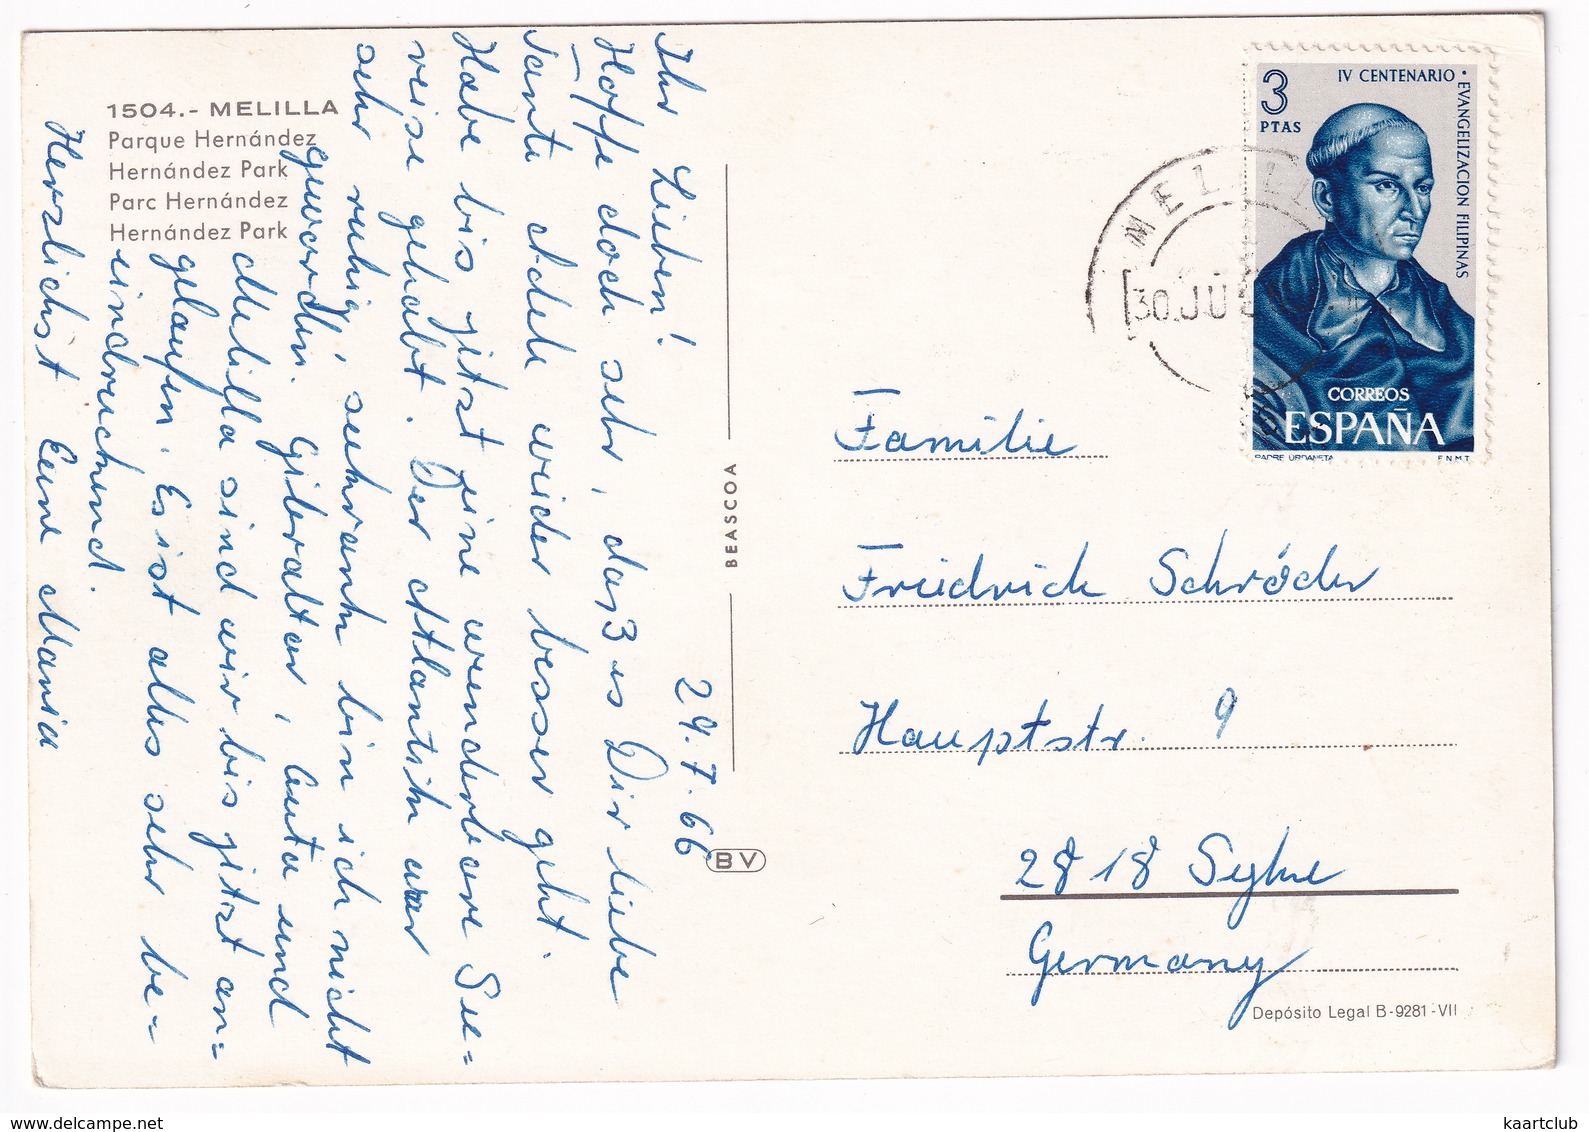 1504.- MELILLA
Parque Hernández
Hernández Park
Parc Hernández
Hernández Park
29.7.66
Ihr Lieben!
Hoffe doch sehr, daß es Dir liebe
Tante Adele wieder besser geht.
Habe bis jetzt eine wunderbare See=
reise gehabt. Der Atlantik war
sehr ruhig, seekrank bin ich nicht
geworden. Gibraltar, Ceuta und
Melilla sind wir bis jetzt an=
gelaufen. Es ist alles sehr be=
eindruckend.
Herzlichst Eure Maria
BEASCOA
BV
3
PTAS
IV CENTENARIO · EVANGELIZACION FILIPINAS
CORREOS
ESPAÑA
PADRE URDANETA
F.N.M.T.
MELILLA
30 JUL
Familie
Friedrich Schröder
Hauptstr. 9
2818 Syke
Germany
Depósito Legal B-9281-VII
kaartclub